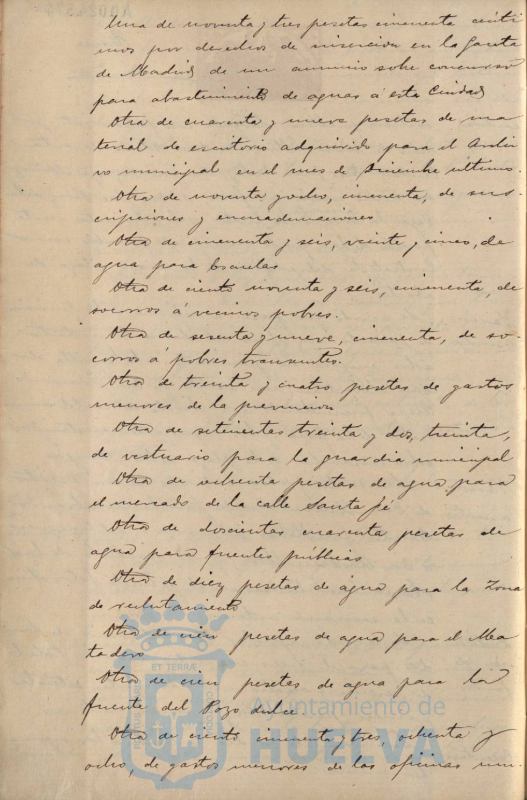 Una de noventa y tres pesetas cincuenta cénti
mos por derechos de inserción en la Gaceta
de Madrid de un anuncio sobre concurso
para abastecimiento de aguas á esta Ciudad
Otra de cuarenta y nueve pesetas de ma
terial de escritorio adquirido para el Archi
vo municipal en el mes de Diciembre último.
Otra de noventa y ocho, cincuenta, de sus-
cripciones y encuadernaciones
Otra de cincuenta y seis, veinte y cinco, de
agua para Escuelas
Otra de ciento noventa y seis, cincuenta, de
socorros á vecinos pobres.
Otra de sesenta y nueve, cincuenta, de so-
corros á pobres transeuntes.
Otra de treinta y cuatro pesetas de gastos
menores de la prevencion
Otra de setecientas treinta y dos, treinta,
de vestuario para la guardia municipal
Otra de ochenta pesetas de agua para
el mercado de la calle Santa Fé
Otra de doscientas cuarenta pesetas de
agua para fuentes públicas
Otra de diez pesetas de agua para la Zona
de reclutamiento
Otra de cien pesetas de agua para el Ma
tadero
Otra de cien pesetas de agua para la
fuente del Pozo dulce.
Otra de ciento cincuenta y tres, ochenta y
ocho, de gastos menores de las oficinas mu-
ET TERRÆ
Ayuntamiento de
HUELVA